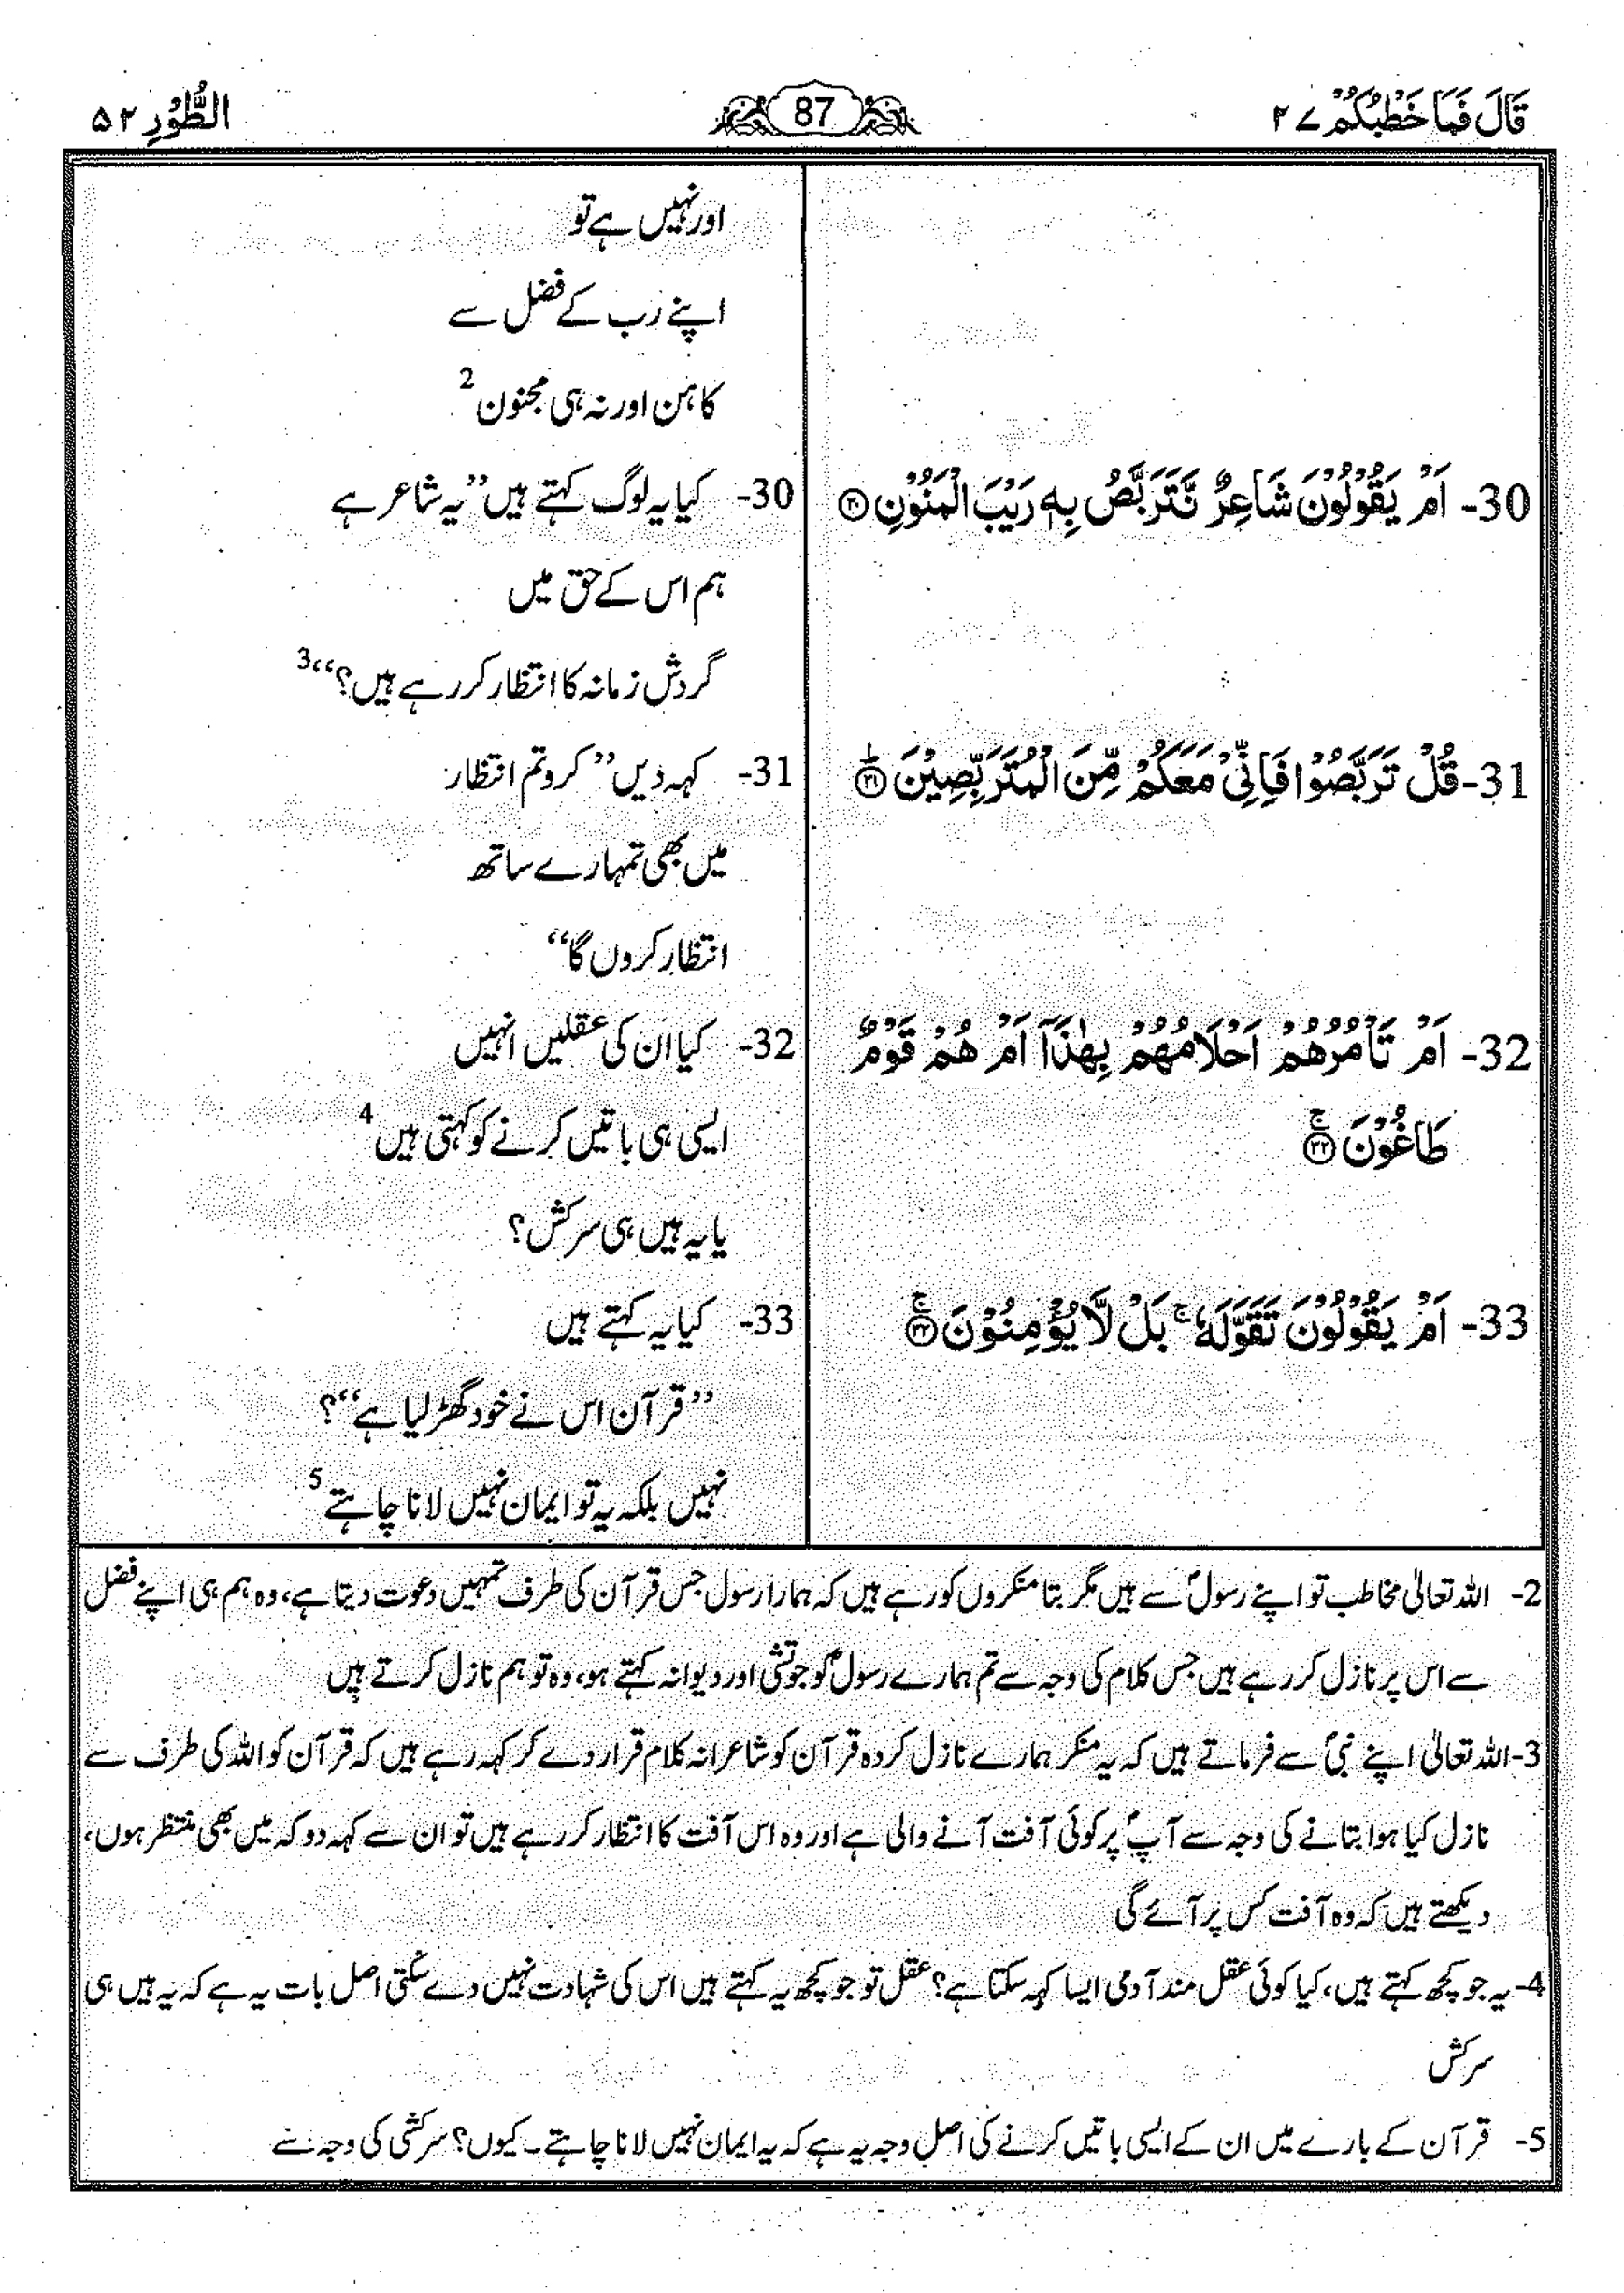 قَالَ فَمَا خَطْبُكُمْ ۲۷
87
الطُّوْرِ ۵۲
اور نہیں ہے تو
اپنے رب کے فضل سے
کاہن اور نہ ہی مجنون 2
30- اَمْ يَقُوْلُوْنَ شَاعِرٌ نَّتَرَبَّصُ بِهٖ رَيْبَ الْمَنُوْنِ ۝۳۰
30- کیا یہ لوگ کہتے ہیں ’’یہ شاعر ہے
ہم اس کے حق میں
گردش زمانہ کا انتظار کر رہے ہیں؟‘‘ 3
31- قُلْ تَرَبَّصُوْا فَاِنِّيْ مَعَكُمْ مِّنَ الْمُتَرَبِّصِيْنَ ۝۳۱ؕ
31- کہہ دیں ’’کرو تم انتظار
میں بھی تمہارے ساتھ
انتظار کروں گا‘‘
32- اَمْ تَاْمُرُهُمْ اَحْلَامُهُمْ بِهٰذَآ اَمْ هُمْ قَوْمٌ
طَاغُوْنَ ۝۳۲ۚ
32- کیا ان کی عقلیں انہیں
ایسی ہی باتیں کرنے کو کہتی ہیں 4
یا یہ ہیں ہی سرکش؟
33- اَمْ يَقُوْلُوْنَ تَقَوَّلَهٗ ۚ بَلْ لَّا يُؤْمِنُوْنَ ۝۳۳ۚ
33- کیا یہ کہتے ہیں
’’قرآن اس نے خود گھڑ لیا ہے‘‘؟
نہیں بلکہ یہ تو ایمان نہیں لانا چاہتے 5
2- اللہ تعالیٰ مخاطب تو اپنے رسولؐ سے ہیں مگر بتا منکروں کو رہے ہیں کہ ہمارا رسول جس قرآن کی طرف تمہیں دعوت دیتا ہے، وہ ہم ہی اپنے فضل
سے اس پر نازل کر رہے ہیں جس کلام کی وجہ سے تم ہمارے رسولؐ کو جوتشی اور دیوانہ کہتے ہو، وہ تو ہم نازل کرتے ہیں
3- اللہ تعالیٰ اپنے نبیؐ سے فرماتے ہیں کہ یہ منکر ہمارے نازل کردہ قرآن کو شاعرانہ کلام قرار دے کر کہہ رہے ہیں کہ قرآن کو اللہ کی طرف سے
نازل کیا ہوا بتانے کی وجہ سے آپؐ پر کوئی آفت آنے والی ہے اور وہ اس آفت کا انتظار کر رہے ہیں تو ان سے کہہ دو کہ میں بھی منتظر ہوں،
دیکھتے ہیں کہ وہ آفت کس پر آئے گی
4- یہ جو کچھ کہتے ہیں، کیا کوئی عقل مند آدمی ایسا کہہ سکتا ہے؟ عقل تو جو کچھ یہ کہتے ہیں اس کی شہادت نہیں دے سکتی اصل بات یہ ہے کہ یہ ہیں ہی
سرکش
5- قرآن کے بارے میں ان کے ایسی باتیں کرنے کی اصل وجہ یہ ہے کہ یہ ایمان نہیں لانا چاہتے۔ کیوں؟ سرکشی کی وجہ سے